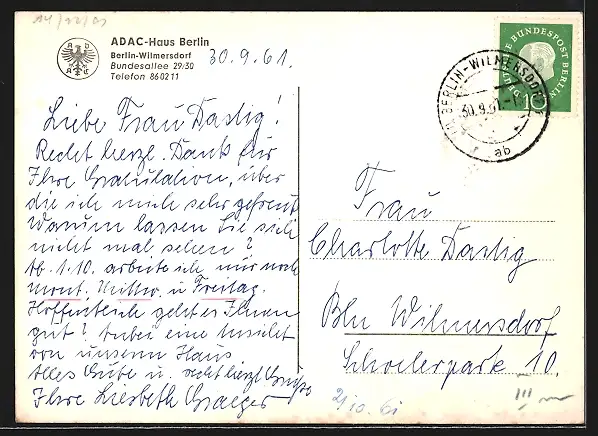 ADAC-Haus Berlin
Berlin-Wilmersdorf
Bundesallee 29/30
Telefon 860211
30.9.61.
Liebe Frau Dastig!
Recht herzl. Dank für
Ihre Gratulation, über
die ich mich sehr gefreut.
Warum lassen Sie sich
nicht mal sehen?
Ab 1.10. arbeite ich nur noch
Mont. Mittw. u. Freitag.
Hoffentlich geht es Ihnen
gut? Anbei eine Ansicht
von unserm Haus.
Alles Gute u. recht herzl. Grüße
Ihre Liesbeth Graeger
DEUTSCHE BUNDESPOST BERLIN
10
BERLIN-WILMERSDORF
30.9.61
ab
Frau
Charlotte Dastig
Bln Wilmersdorf
Schoelerpark 10.
2/10.61
III